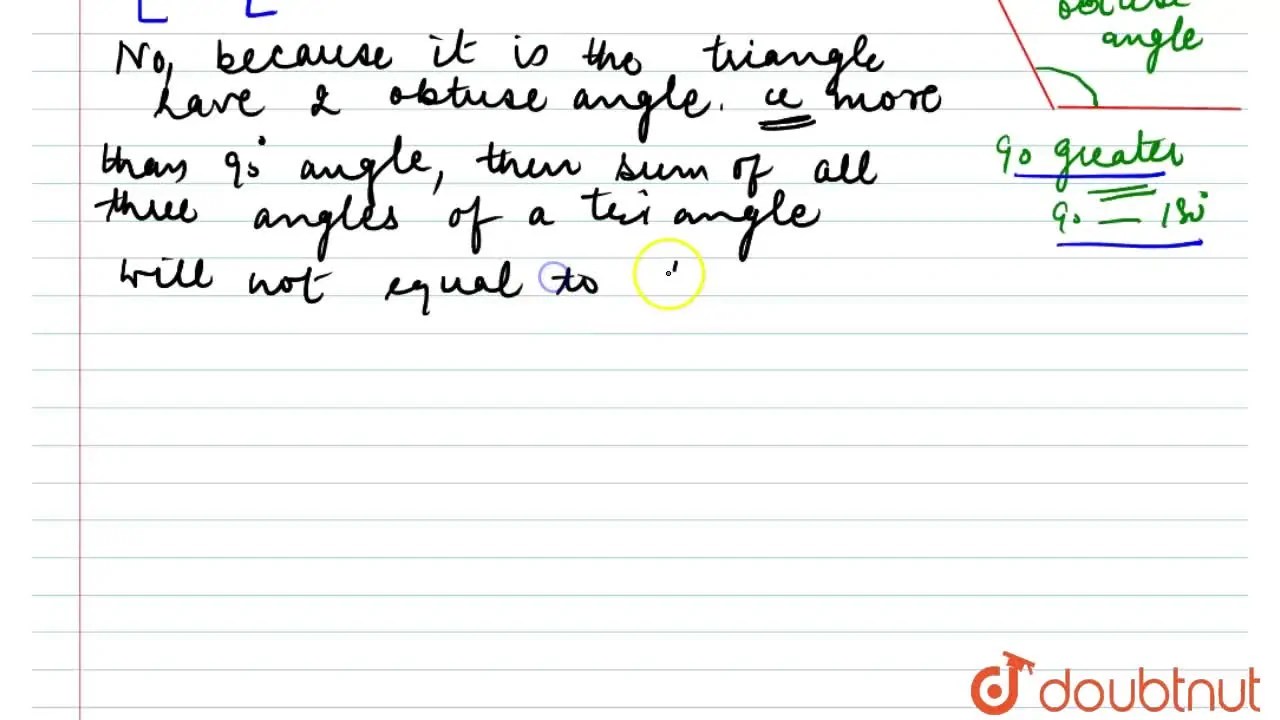 obtuse
angle
No, because it is the triangle
have 2 obtuse angle. ie more
than 90° angle, then sum of all
three angles of a triangle
will not equal to
90 greater
90 — 180°
doubtnut